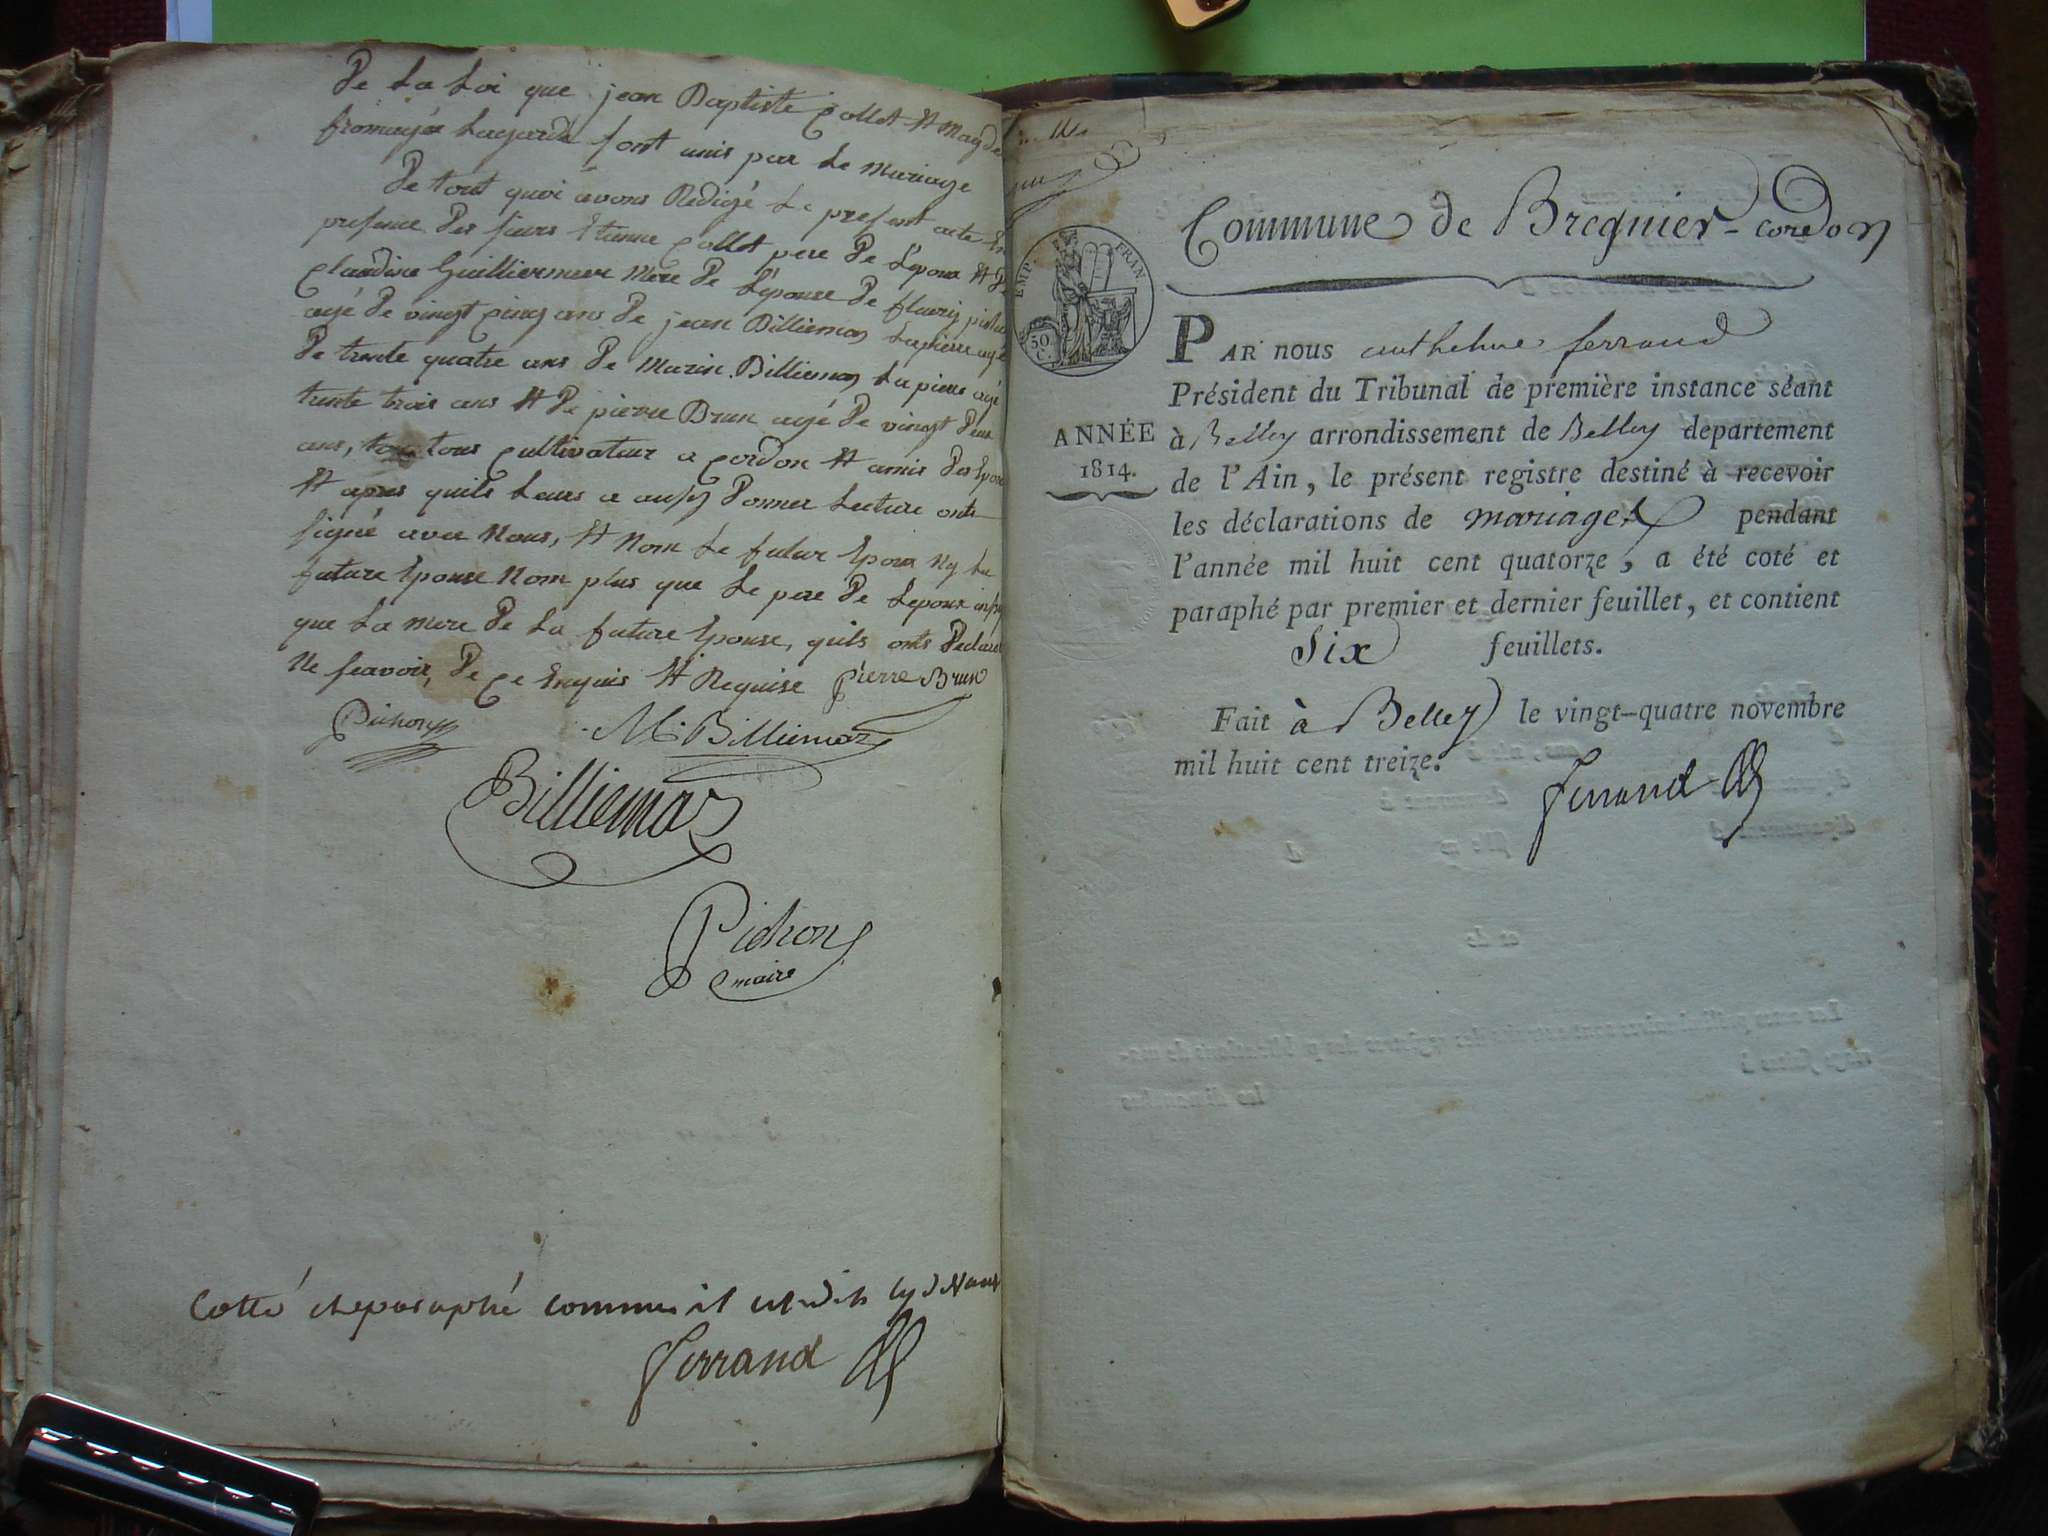 De La Loi que jean Baptiste Collet Et Magde
fromagér Lagarde sont unis par Le Mariage
De tout quoi avons Redigé Le present acte En
presence Des sieurs Etienne Collet pere De L'epoux Et De
Claudine Guilliermeur Mere De L'épouse De fleury
agé De vingt Cinq ans De jean Billiemaz Lapierre agé
De trente quatre ans De Marin Billiemaz La pierre agé
trente trois ans Et De pierre Brun agé De vingt Deux
ans, tous Cultivateur a Cordon Et amis Des Epoux
Et apres quils Leurs a ausy Donner Lecture onts
signé avec Nous, Et Nom Le futur Epoux Ny La
future Epouse Nom plus que Le pere De Lepoux
que La Mere De La future Epouse, quils onts Declaré
Ne scavoir, De Ce Enquis Et Requise Pierre Brun
Pichon M. Billiemaz
Billiemaz
Pichon
maire
Cotté et paraphé comme il est dit
Ferrand
Commune de Bregnier-cordon
EMP. FRAN
50
C.
PAR nous anthelme ferrand
Président du Tribunal de première instance séant
ANNÉE
1814.
à Belley arrondissement de Belley departement
de l'Ain, le présent registre destiné à recevoir
les déclarations de mariages pendant
l'année mil huit cent quatorze, a été coté et
paraphé par premier et dernier feuillet, et contient
Six feuillets.
Fait à Belley le vingt-quatre novembre
mil huit cent treize.
Ferrand